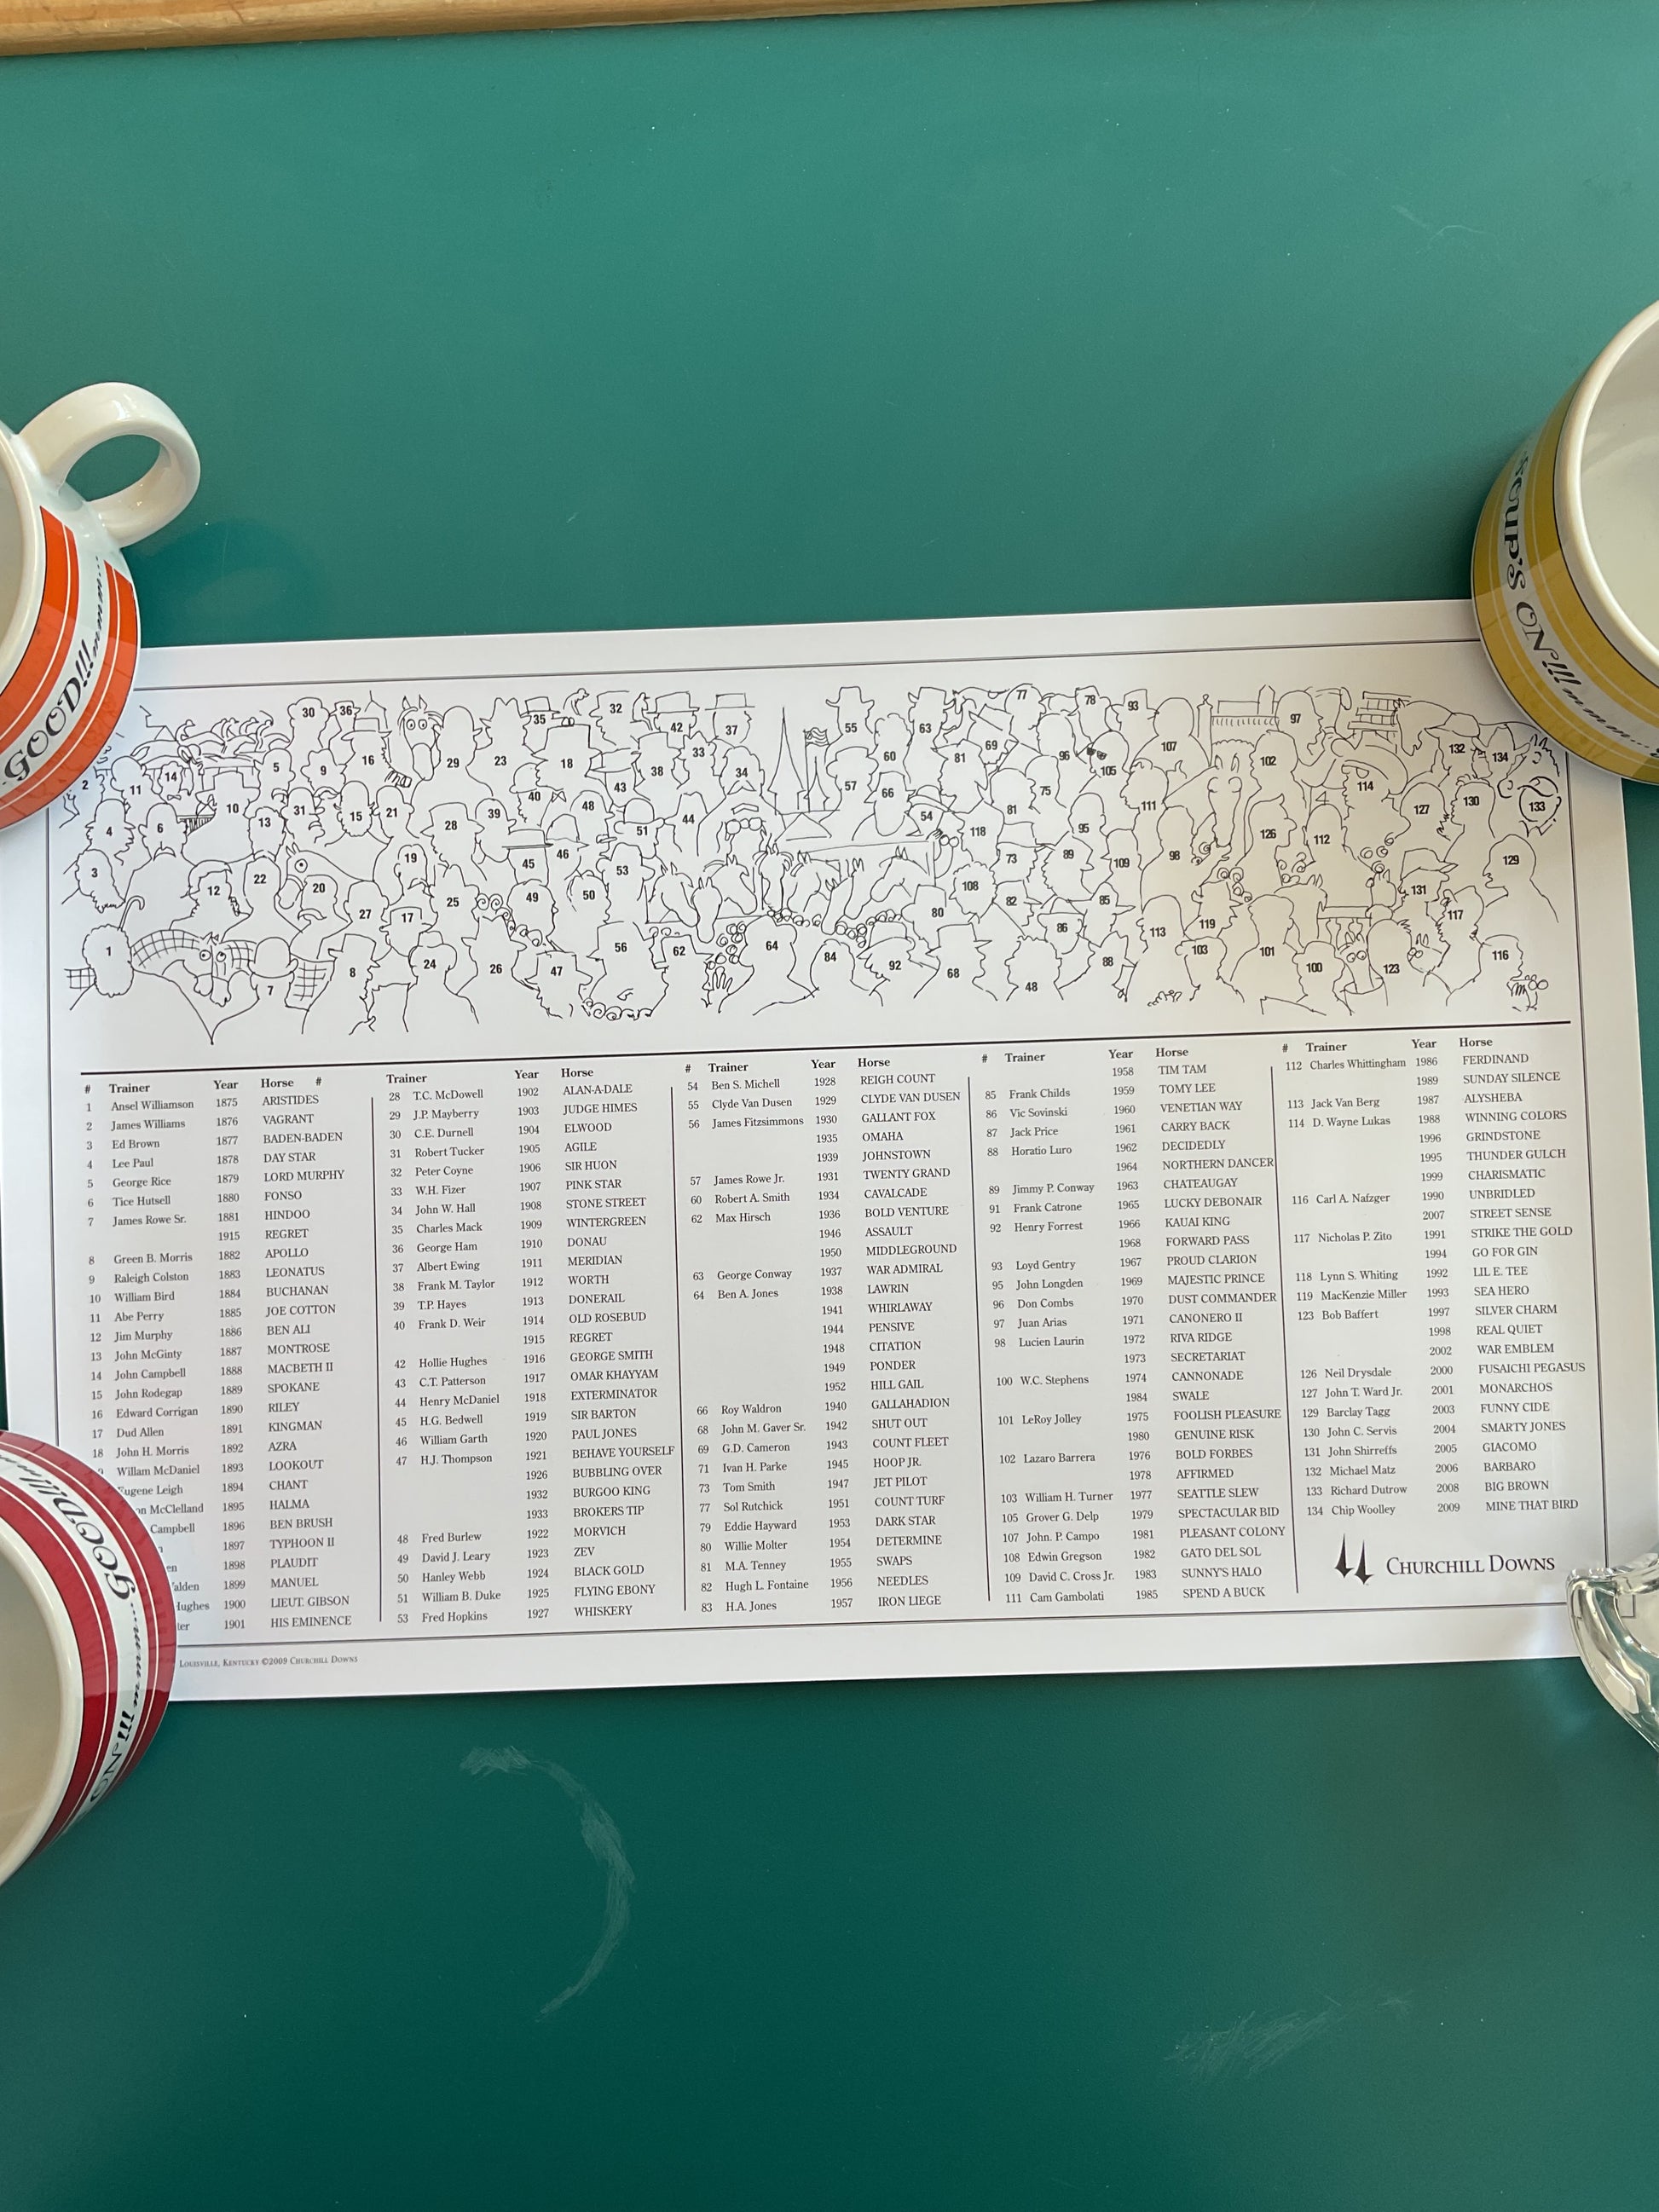 GOOD!!!
SOUP'S ON!!!
30
36
35
32
42
37
55
63
77
78
93
97
2
11
14
5
9
16
29
23
18
38
33
34
60
69
81
96
105
107
102
132
134
4
6
10
13
31
15
21
28
39
40
48
43
51
44
57
66
54
118
81
75
95
111
98
126
112
114
127
130
133
3
12
22
20
19
25
45
46
49
50
53
108
73
89
109
82
85
129
131
117
1
7
27
17
8
24
26
47
56
62
64
84
80
92
68
86
48
88
113
119
103
101
100
123
116
# Trainer Year Horse
1 Ansel Williamson 1875 ARISTIDES
2 James Williams 1876 VAGRANT
3 Ed Brown 1877 BADEN-BADEN
4 Lee Paul 1878 DAY STAR
5 George Rice 1879 LORD MURPHY
6 Tice Hutsell 1880 FONSO
7 James Rowe Sr. 1881 HINDOO
1915 REGRET
8 Green B. Morris 1882 APOLLO
9 Raleigh Colston 1883 LEONATUS
10 William Bird 1884 BUCHANAN
11 Abe Perry 1885 JOE COTTON
12 Jim Murphy 1886 BEN ALI
13 John McGinty 1887 MONTROSE
14 John Campbell 1888 MACBETH II
15 John Rodegap 1889 SPOKANE
16 Edward Corrigan 1890 RILEY
17 Dud Allen 1891 KINGMAN
18 John H. Morris 1892 AZRA
Willam McDaniel 1893 LOOKOUT
Eugene Leigh 1894 CHANT
McClelland 1895 HALMA
Campbell 1896 BEN BRUSH
1897 TYPHOON II
1898 PLAUDIT
1899 MANUEL
Hughes 1900 LIEUT. GIBSON
1901 HIS EMINENCE
# Trainer Year Horse
28 T.C. McDowell 1902 ALAN-A-DALE
29 J.P. Mayberry 1903 JUDGE HIMES
30 C.E. Durnell 1904 ELWOOD
31 Robert Tucker 1905 AGILE
32 Peter Coyne 1906 SIR HUON
33 W.H. Fizer 1907 PINK STAR
34 John W. Hall 1908 STONE STREET
35 Charles Mack 1909 WINTERGREEN
36 George Ham 1910 DONAU
37 Albert Ewing 1911 MERIDIAN
38 Frank M. Taylor 1912 WORTH
39 T.P. Hayes 1913 DONERAIL
40 Frank D. Weir 1914 OLD ROSEBUD
1915 REGRET
42 Hollie Hughes 1916 GEORGE SMITH
43 C.T. Patterson 1917 OMAR KHAYYAM
44 Henry McDaniel 1918 EXTERMINATOR
45 H.G. Bedwell 1919 SIR BARTON
46 William Garth 1920 PAUL JONES
47 H.J. Thompson 1921 BEHAVE YOURSELF
1926 BUBBLING OVER
1932 BURGOO KING
1933 BROKERS TIP
48 Fred Burlew 1922 MORVICH
49 David J. Leary 1923 ZEV
50 Hanley Webb 1924 BLACK GOLD
51 William B. Duke 1925 FLYING EBONY
53 Fred Hopkins 1927 WHISKERY
# Trainer Year Horse
54 Ben S. Michell 1928 REIGH COUNT
55 Clyde Van Dusen 1929 CLYDE VAN DUSEN
56 James Fitzsimmons 1930 GALLANT FOX
1935 OMAHA
1939 JOHNSTOWN
57 James Rowe Jr. 1931 TWENTY GRAND
60 Robert A. Smith 1934 CAVALCADE
62 Max Hirsch 1936 BOLD VENTURE
1946 ASSAULT
1950 MIDDLEGROUND
63 George Conway 1937 WAR ADMIRAL
64 Ben A. Jones 1938 LAWRIN
1941 WHIRLAWAY
1944 PENSIVE
1948 CITATION
1949 PONDER
1952 HILL GAIL
66 Roy Waldron 1940 GALLAHADION
68 John M. Gaver Sr. 1942 SHUT OUT
69 G.D. Cameron 1943 COUNT FLEET
71 Ivan H. Parke 1945 HOOP JR.
73 Tom Smith 1947 JET PILOT
77 Sol Rutchick 1951 COUNT TURF
79 Eddie Hayward 1953 DARK STAR
80 Willie Molter 1954 DETERMINE
81 M.A. Tenney 1955 SWAPS
82 Hugh L. Fontaine 1956 NEEDLES
83 H.A. Jones 1957 IRON LIEGE
# Trainer Year Horse
1958 TIM TAM
85 Frank Childs 1959 TOMY LEE
86 Vic Sovinski 1960 VENETIAN WAY
87 Jack Price 1961 CARRY BACK
88 Horatio Luro 1962 DECIDEDLY
1964 NORTHERN DANCER
89 Jimmy P. Conway 1963 CHATEAUGAY
91 Frank Catrone 1965 LUCKY DEBONAIR
92 Henry Forrest 1966 KAUAI KING
1968 FORWARD PASS
93 Loyd Gentry 1967 PROUD CLARION
95 John Longden 1969 MAJESTIC PRINCE
96 Don Combs 1970 DUST COMMANDER
97 Juan Arias 1971 CANONERO II
98 Lucien Laurin 1972 RIVA RIDGE
1973 SECRETARIAT
100 W.C. Stephens 1974 CANNONADE
1984 SWALE
101 LeRoy Jolley 1975 FOOLISH PLEASURE
1980 GENUINE RISK
102 Lazaro Barrera 1976 BOLD FORBES
1978 AFFIRMED
103 William H. Turner 1977 SEATTLE SLEW
105 Grover G. Delp 1979 SPECTACULAR BID
107 John. P. Campo 1981 PLEASANT COLONY
108 Edwin Gregson 1982 GATO DEL SOL
109 David C. Cross Jr. 1983 SUNNY'S HALO
111 Cam Gambolati 1985 SPEND A BUCK
# Trainer Year Horse
112 Charles Whittingham 1986 FERDINAND
1989 SUNDAY SILENCE
113 Jack Van Berg 1987 ALYSHEBA
114 D. Wayne Lukas 1988 WINNING COLORS
1996 GRINDSTONE
1995 THUNDER GULCH
1999 CHARISMATIC
116 Carl A. Nafzger 1990 UNBRIDLED
2007 STREET SENSE
117 Nicholas P. Zito 1991 STRIKE THE GOLD
1994 GO FOR GIN
118 Lynn S. Whiting 1992 LIL E. TEE
119 MacKenzie Miller 1993 SEA HERO
123 Bob Baffert 1997 SILVER CHARM
1998 REAL QUIET
2002 WAR EMBLEM
126 Neil Drysdale 2000 FUSAICHI PEGASUS
127 John T. Ward Jr. 2001 MONARCHOS
129 Barclay Tagg 2003 FUNNY CIDE
130 John C. Servis 2004 SMARTY JONES
131 John Shirreffs 2005 GIACOMO
132 Michael Matz 2006 BARBARO
133 Richard Dutrow 2008 BIG BROWN
134 Chip Woolley 2009 MINE THAT BIRD
CHURCHILL DOWNS
LOUISVILLE, KENTUCKY ©2009 CHURCHILL DOWNS